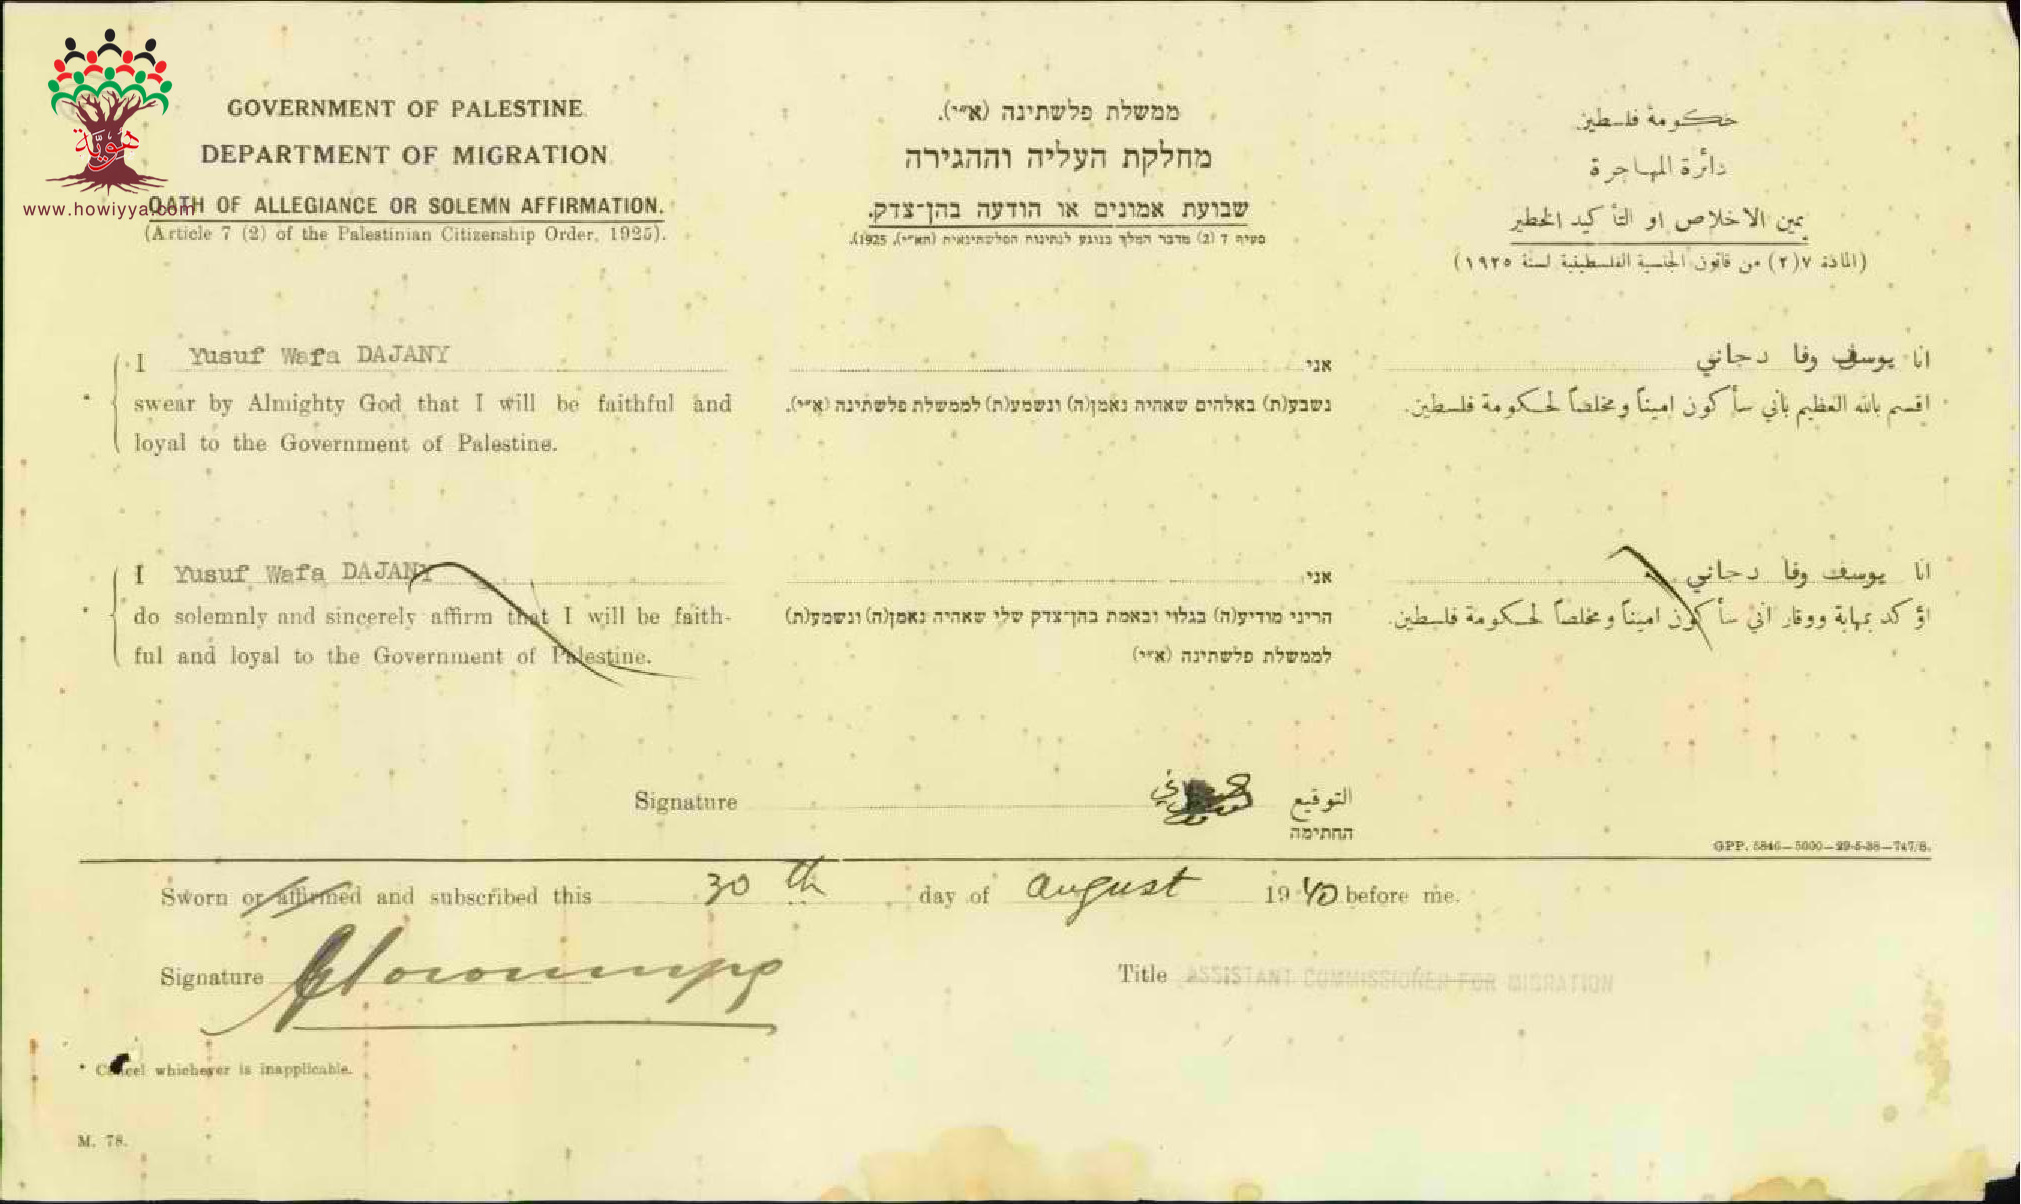 هوية
www.howiyya.com
GOVERNMENT OF PALESTINE.
DEPARTMENT OF MIGRATION.
OATH OF ALLEGIANCE OR SOLEMN AFFIRMATION.
(Article 7 (2) of the Palestinian Citizenship Order, 1925).
ממשלת פלשתינה (א״י).
מחלקת העליה וההגירה
שבועת אמונים או הודעה בהן־צדק.
סעיף 7 (2) מדבר המלך בנוגע לנתינות הפלשתינאית (הא״י), 1925).
حكومة فلسطين
دائرة المهاجرة
يمين الاخلاص او التأكيد الخطير
(المادة ٧(٢) من قانون الجنسية الفلسطينية لسنة ١٩٢٥)
I Yusuf Wafa DAJANY
* swear by Almighty God that I will be faithful and
loyal to the Government of Palestine.
אני
נשבע(ת) באלהים שאהיה נאמן(ה) ונשמע(ת) לממשלת פלשתינה (א״י).
انا يوسف وفا دجاني
اقسم بالله العظيم بأني سأكون اميناً ومخلصاً لحكومة فلسطين.
I Yusuf Wafa DAJANY
* do solemnly and sincerely affirm that I will be faith-
ful and loyal to the Government of Palestine.
אני
הריני מודיע(ה) בגלוי ובאמת בהן־צדק שלי שאהיה נאמן(ה) ונשמע(ת)
לממשלת פלשתינה (א״י)
انا يوسف وفا دجاني
اؤكد بمهابة ووقار اني سأكون اميناً ومخلصاً لحكومة فلسطين.
Signature التوقيع
החתימה
GPP. 5846—5000—29-5-38—747/8.
Sworn or affirmed and subscribed this 30 th day of august 1940 before me.
Signature
Title ASSISTANT COMMISSIONER FOR MIGRATION
* Cancel whichever is inapplicable.
M. 78.